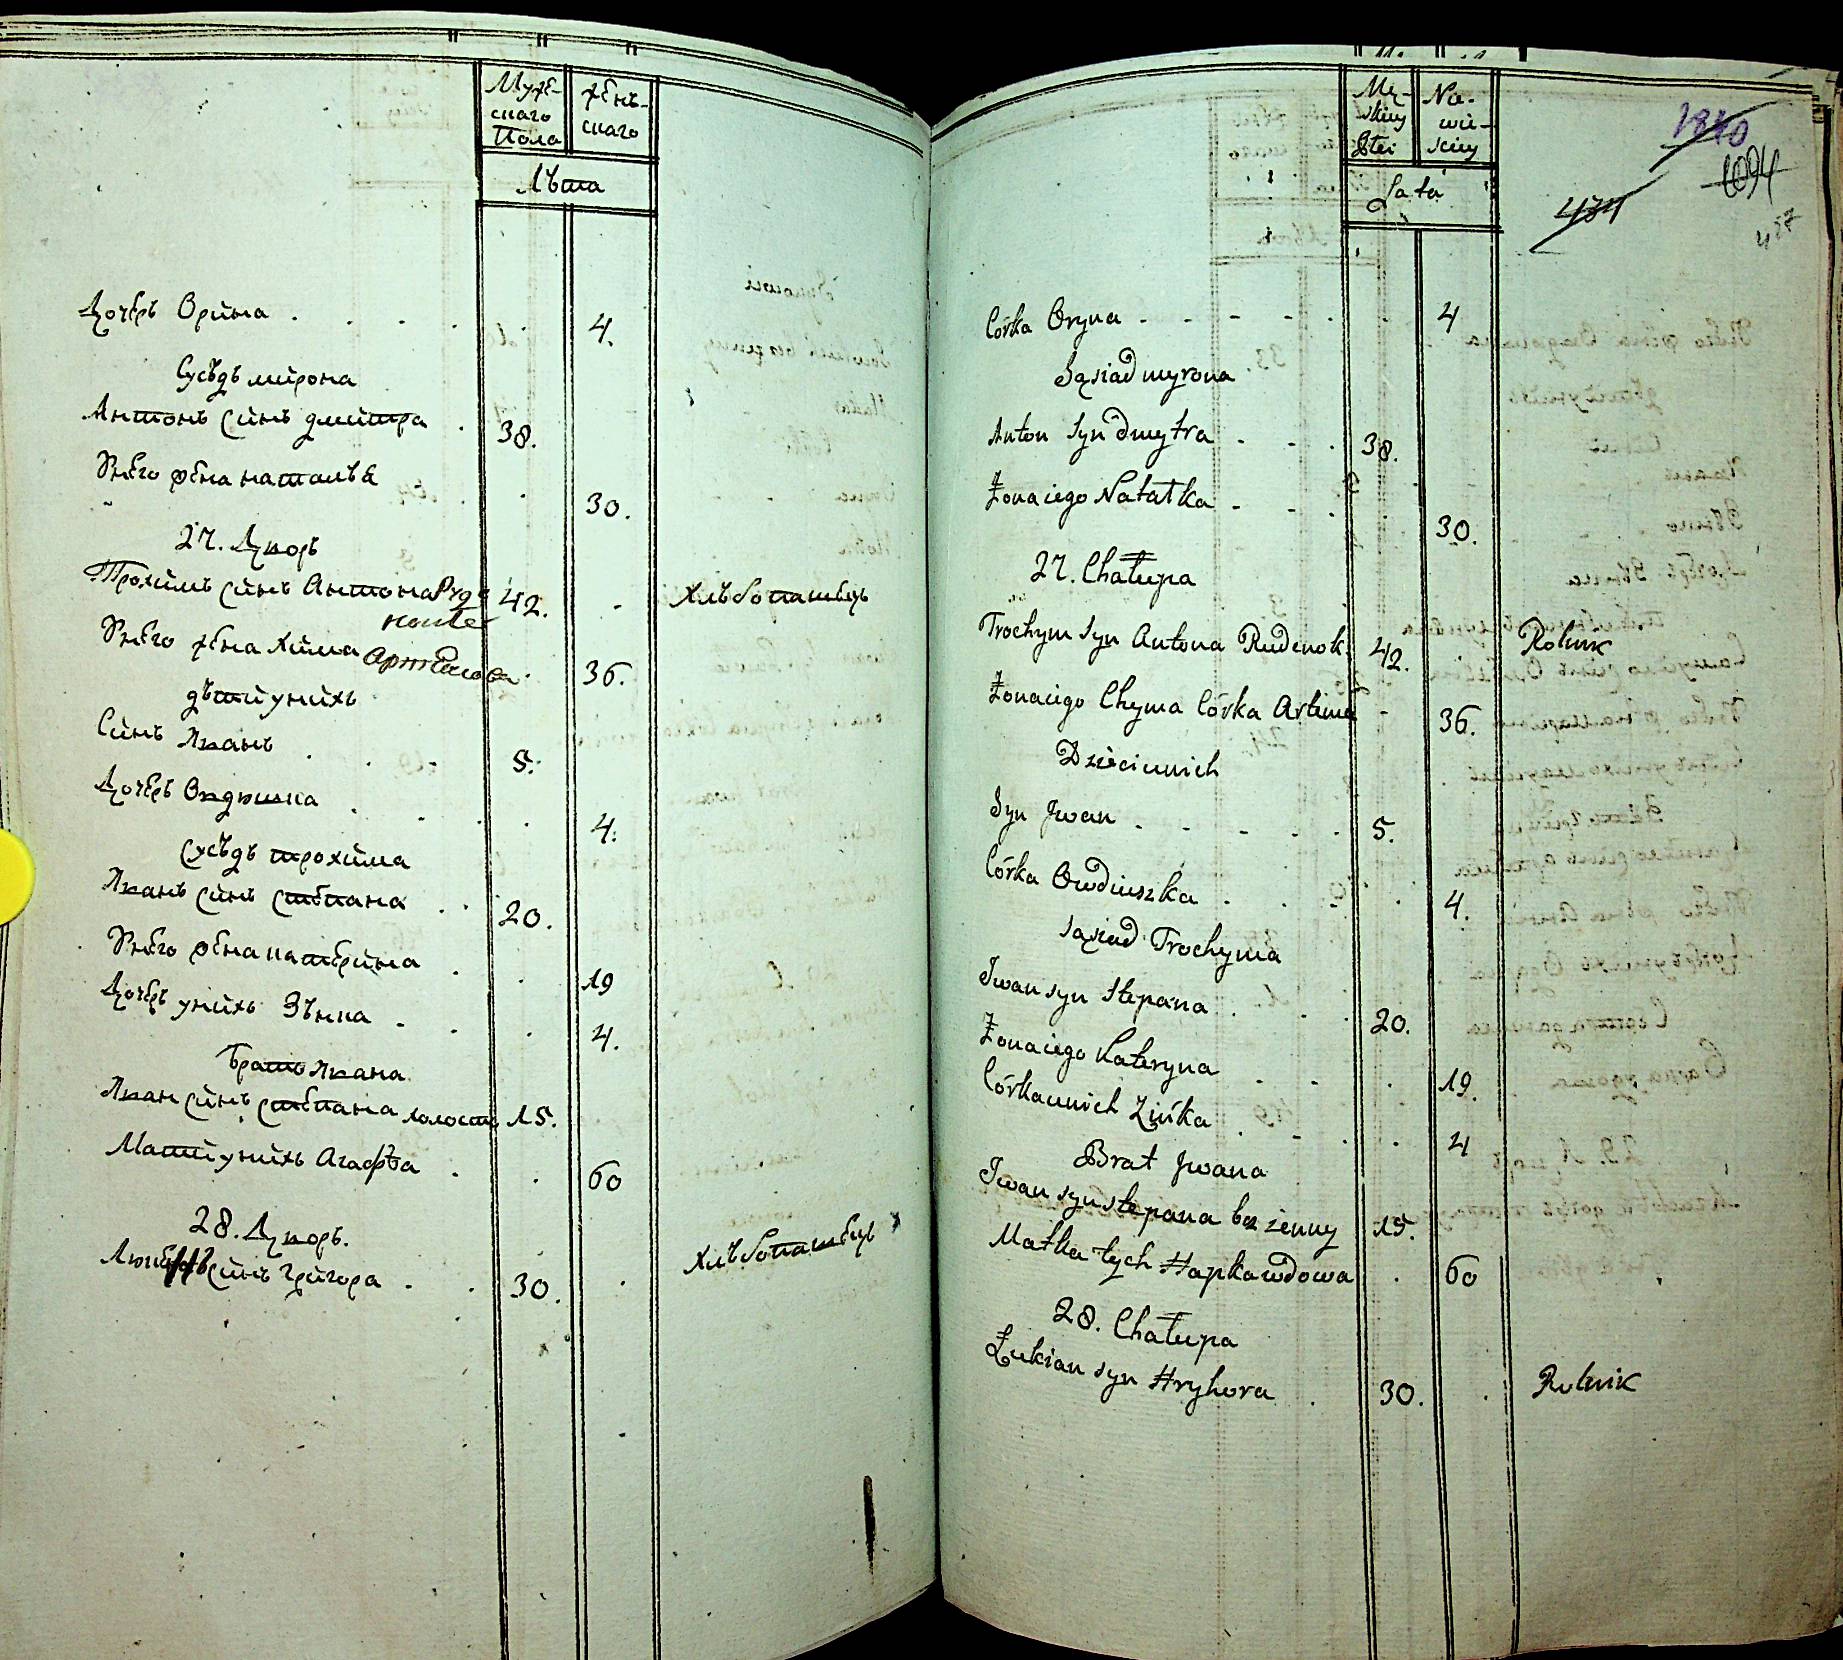 Мужескаго Пола
женскаго
Лѣта
Дочерь Орина . . . . 4.
Сусѣдъ мирона
Антонъ синъ дмитра . 38.
Унего жена наталѣа . 30.
27. Дворъ
Трохимъ синъ Антона Руденокъ 42. Хлѣбопашецъ
Унего жена Хима Артемова 36.
дѣти унихъ
Синъ Иванъ . . . 5.
Дочерь Овдюшка . . . . 4.
сусѣдъ трохима
Иванъ синъ степана . . 20.
Унего жена катерина . . 19
Дочерь унихъ Зѣнка . . . 4.
Братъ Ивана
Иван синъ степана холостъ 15.
Мати унихъ Агафѣа . . 60
28. Дворъ.
синъ григора . . 30. Хлѣбопашецъ
Męskiey Płci
Niewieskiey
Lata
1840
1094
434
457
Córka Oryna - - - - . . 4
Sąsiad myrona
Anton syn dmytra - - . 38.
Żona iego Natałka - - . . 30.
27. Chałupa
Trochym syn Antona Rudenok. 42. Rolnik
Żona iego Chyma Córka Artema - 36.
Dzieci unich
Syn Jwan - - - - . 5.
Córka Owdiuszka . . - . 4.
sąsiad Trochyma
Iwan syn Stepana . . . 20.
Żona iego Kateryna . - . 19.
Córka unich Zińka . - . . 4
Brat Jwana
Iwan syn stepana bez żenny 15.
Matka tych Hapka wdowa . 60
28. Chałupa
Łukian syn Hryhora . 30. . Rolnik